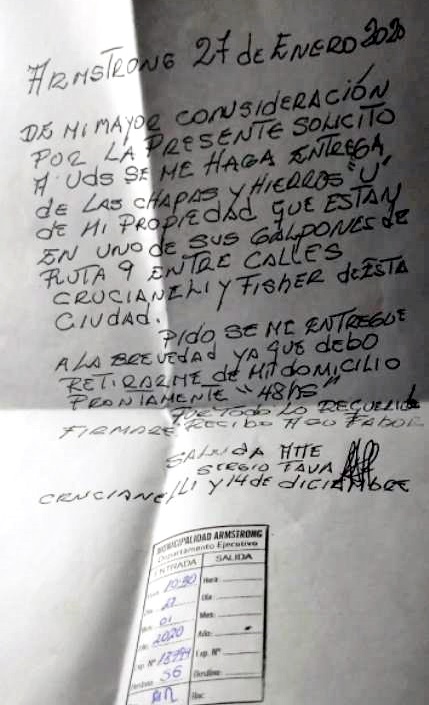 ARMSTRONG 27 de ENERO 2020
DE MI MAYOR CONSIDERACIÓN
POR LA PRESENTE SOLICITO
A Uds SE ME HAGA ENTREGA
de LAS CHAPAS y HIERROS "U"
de MI PROPIEDAD QUE ESTAN
EN UNO de SUS GALPONES de
RUTA 9 ENTRE CALLES
CRUCIANELLI y FISHER de ESTA
CIUDAD.
PIDO SE ME ENTREGUE
A LA BREVEDAD YA QUE DEBO
RETIRARME de MI domICILIO
PRONTAMENTE "48 HS"
POR TODO LO
FIRMARE RECIBO A SU FAVOR
SALUDA ATTE
SERGIO TAVA
CRUCIANELLI y 14 de DICIEMBRE
MUNICIPALIDAD ARMSTRONG
Departamento Ejecutivo
ENTRADA SALIDA
Hora 10:30 Hora:
Día 27 Día:
Mes 01 Mes:
Año 2020 Año:
Exp. Nº Exp. Nº
Destino 56 Destino:
Rec: